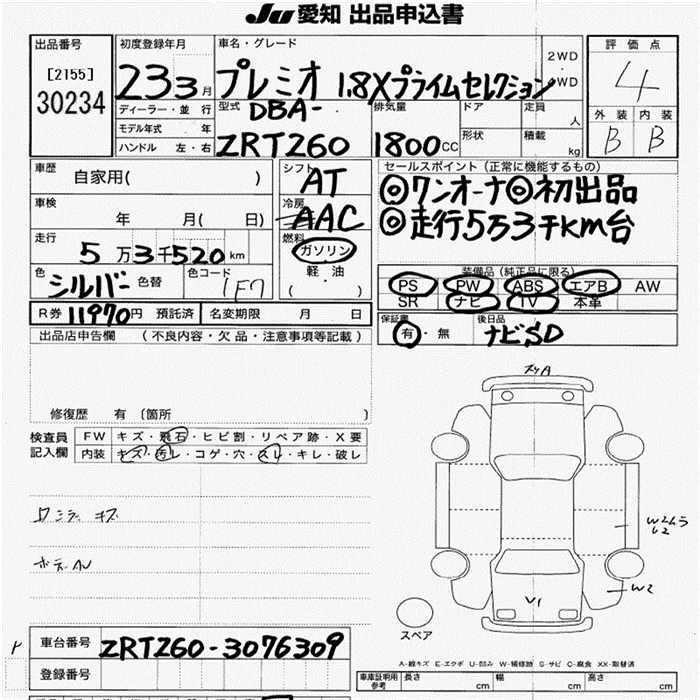 Ju 愛知 出品申込書
出品番号
[2155]
30234
初度登録年月
23 3 月
車名・グレード
プレミオ 1.8Xプライムセレクション
2WD
・
4WD
評価点
4
外装 内装
B B
ディーラー・並行
モデル年式 年
ハンドル 左・右
型式
DBA-
ZRT260
排気量
1800 CC
ドア
形状
定員
人
積載
kg
車歴
自家用( )
車検
年 月( 日)
走行
5万3千520km
色
シルバー
色替
色コード
1F7
シフト
AT
冷房
AAC
燃料
ガソリン
軽・油
( ・ )
セールスポイント(正常に機能するもの)
◎ワンオーナ◎初出品
◎走行5万3千km台
装備品(純正品に限る)
PS PW ABS エアB AW
SR ナビ TV 本革
R券 11970円 預託済
名変期限 月 日
保証書
有・無
後日品
ナビSD
出品店申告欄 (不良内容・欠品・注意事項等記載)
修復歴 有 〔箇所 〕
検査員
記入欄
FW キズ・飛石・ヒビ割・リペア跡・X要
内装 キズ・汚レ・コゲ・穴・スレ・キレ・破レ
キズ
W2
W2
V1
スペア
A-線キズ E-エクボ U-凹み W-補修跡 S-サビ C-腐食 XX-取替済
車台番号 ZRT260-3076309
登録番号
車庫証明用
参考
長さ cm
幅 cm
高さ cm